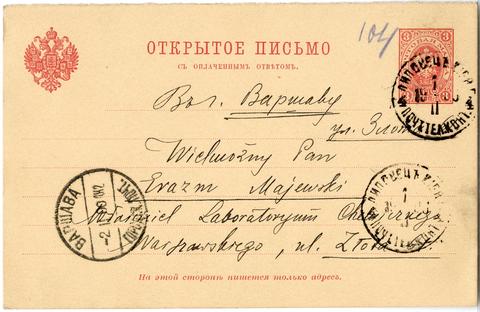 104
3 3
ОТКРЫТОЕ ПИСЬМО
СЪ ОПЛАЧЕННЫМЪ ОТВѢТОМЪ.
3 3
Вол. Варшаву
ул. Злот
Wielmożny Pan
Erazm Majewski
Właściciel Laboratoryum Chemicznego
Warszawskiego, ul. Złota
ВАРШАВА
ЛИПОВЕЦЪ КІЕВ
1
II
ЛИПОВЕЦЪ КІЕВ
1
II
На этой сторонѣ пишется только адресъ.